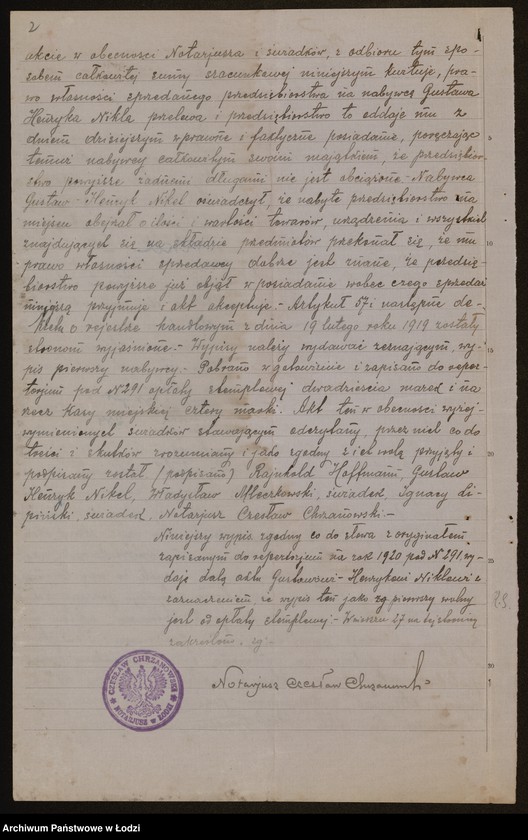 2
akcie w obecności Notarjusza i świadków, z odbioru tym spo-
sobem całkowitej sumy szacunkowej niniejszym kwituje, pra-
wo własności sprzedanego przedsiębiorstwa na nabywcę Gustawa
Henryka Nikla przelewa i przedsiębiorstwo to oddaje mu z
dniem dzisiejszym w prawne i faktyczne posiadanie, poręczając
temuż nabywcy całkowitym swoim majątkiem, że przedsiębior-
stwo powyższe żadnemi długami nie jest obciążone.- Nabywca
Gustaw-Henryk Nikel oświadczył, że nabyte przedsiębiorstwo na
miejscu obejrzał o ilości i wartości towarów, urządzenia i wszystkich
znajdujących się na składzie przedmiotów przekonał się, że mu
prawo własności sprzedawcy dobrze jest znane, że przedsię-
biorstwo powyższe już objął w posiadanie wobec czego sprzedaż
niniejszą przyjmuje i akt akceptuje.- Artykuł 57 i następne de-
kretu o rejestrze handlowym z dnia 19 lutego roku 1919 zostały
stronom wyjaśnione.- Wypisy należy wydawać zeznającym, wy-
pis pierwszy nabywcy.- Pobrano w gotowiźnie i zapisano do reper-
torjum pod N 291 opłaty stemplowej dwadzieścia marek i na
rzecz kasy miejskiej cztery marki. Akt ten w obecności wyżej-
wymienionych świadków stawającym odczytany, przez nich co do
treści i skutków zrozumiany i jako zgodny z ich wolą przyjęty i
podpisany został (podpisano) Rajnhold Hoffmann, Gustaw
Henryk Nikel, Władysław Mleczkowski, świadek, Ignacy Li-
piński, świadek, Notarjusz Czesław Chrzanowski.-
Niniejszy wypis zgodny co do słowa z oryginałem,
zapisanym do repertorjum na rok 1920 pod N 291, wy-
daje dały Gustawowi-Henrykowi Niklowi z
zaznaczeniem, że wypis ten jako pierwszy wolny
jest od opłaty stemplowej.- W wierszu 27 na tej stronicy
zakreślono
Notarjusz Czesław Chrzanowski
CZESŁAW CHRZANOWSKI
NOTARJUSZ w ŁODZI
5
10
15
20
25
30
Archiwum Państwowe w Łodzi